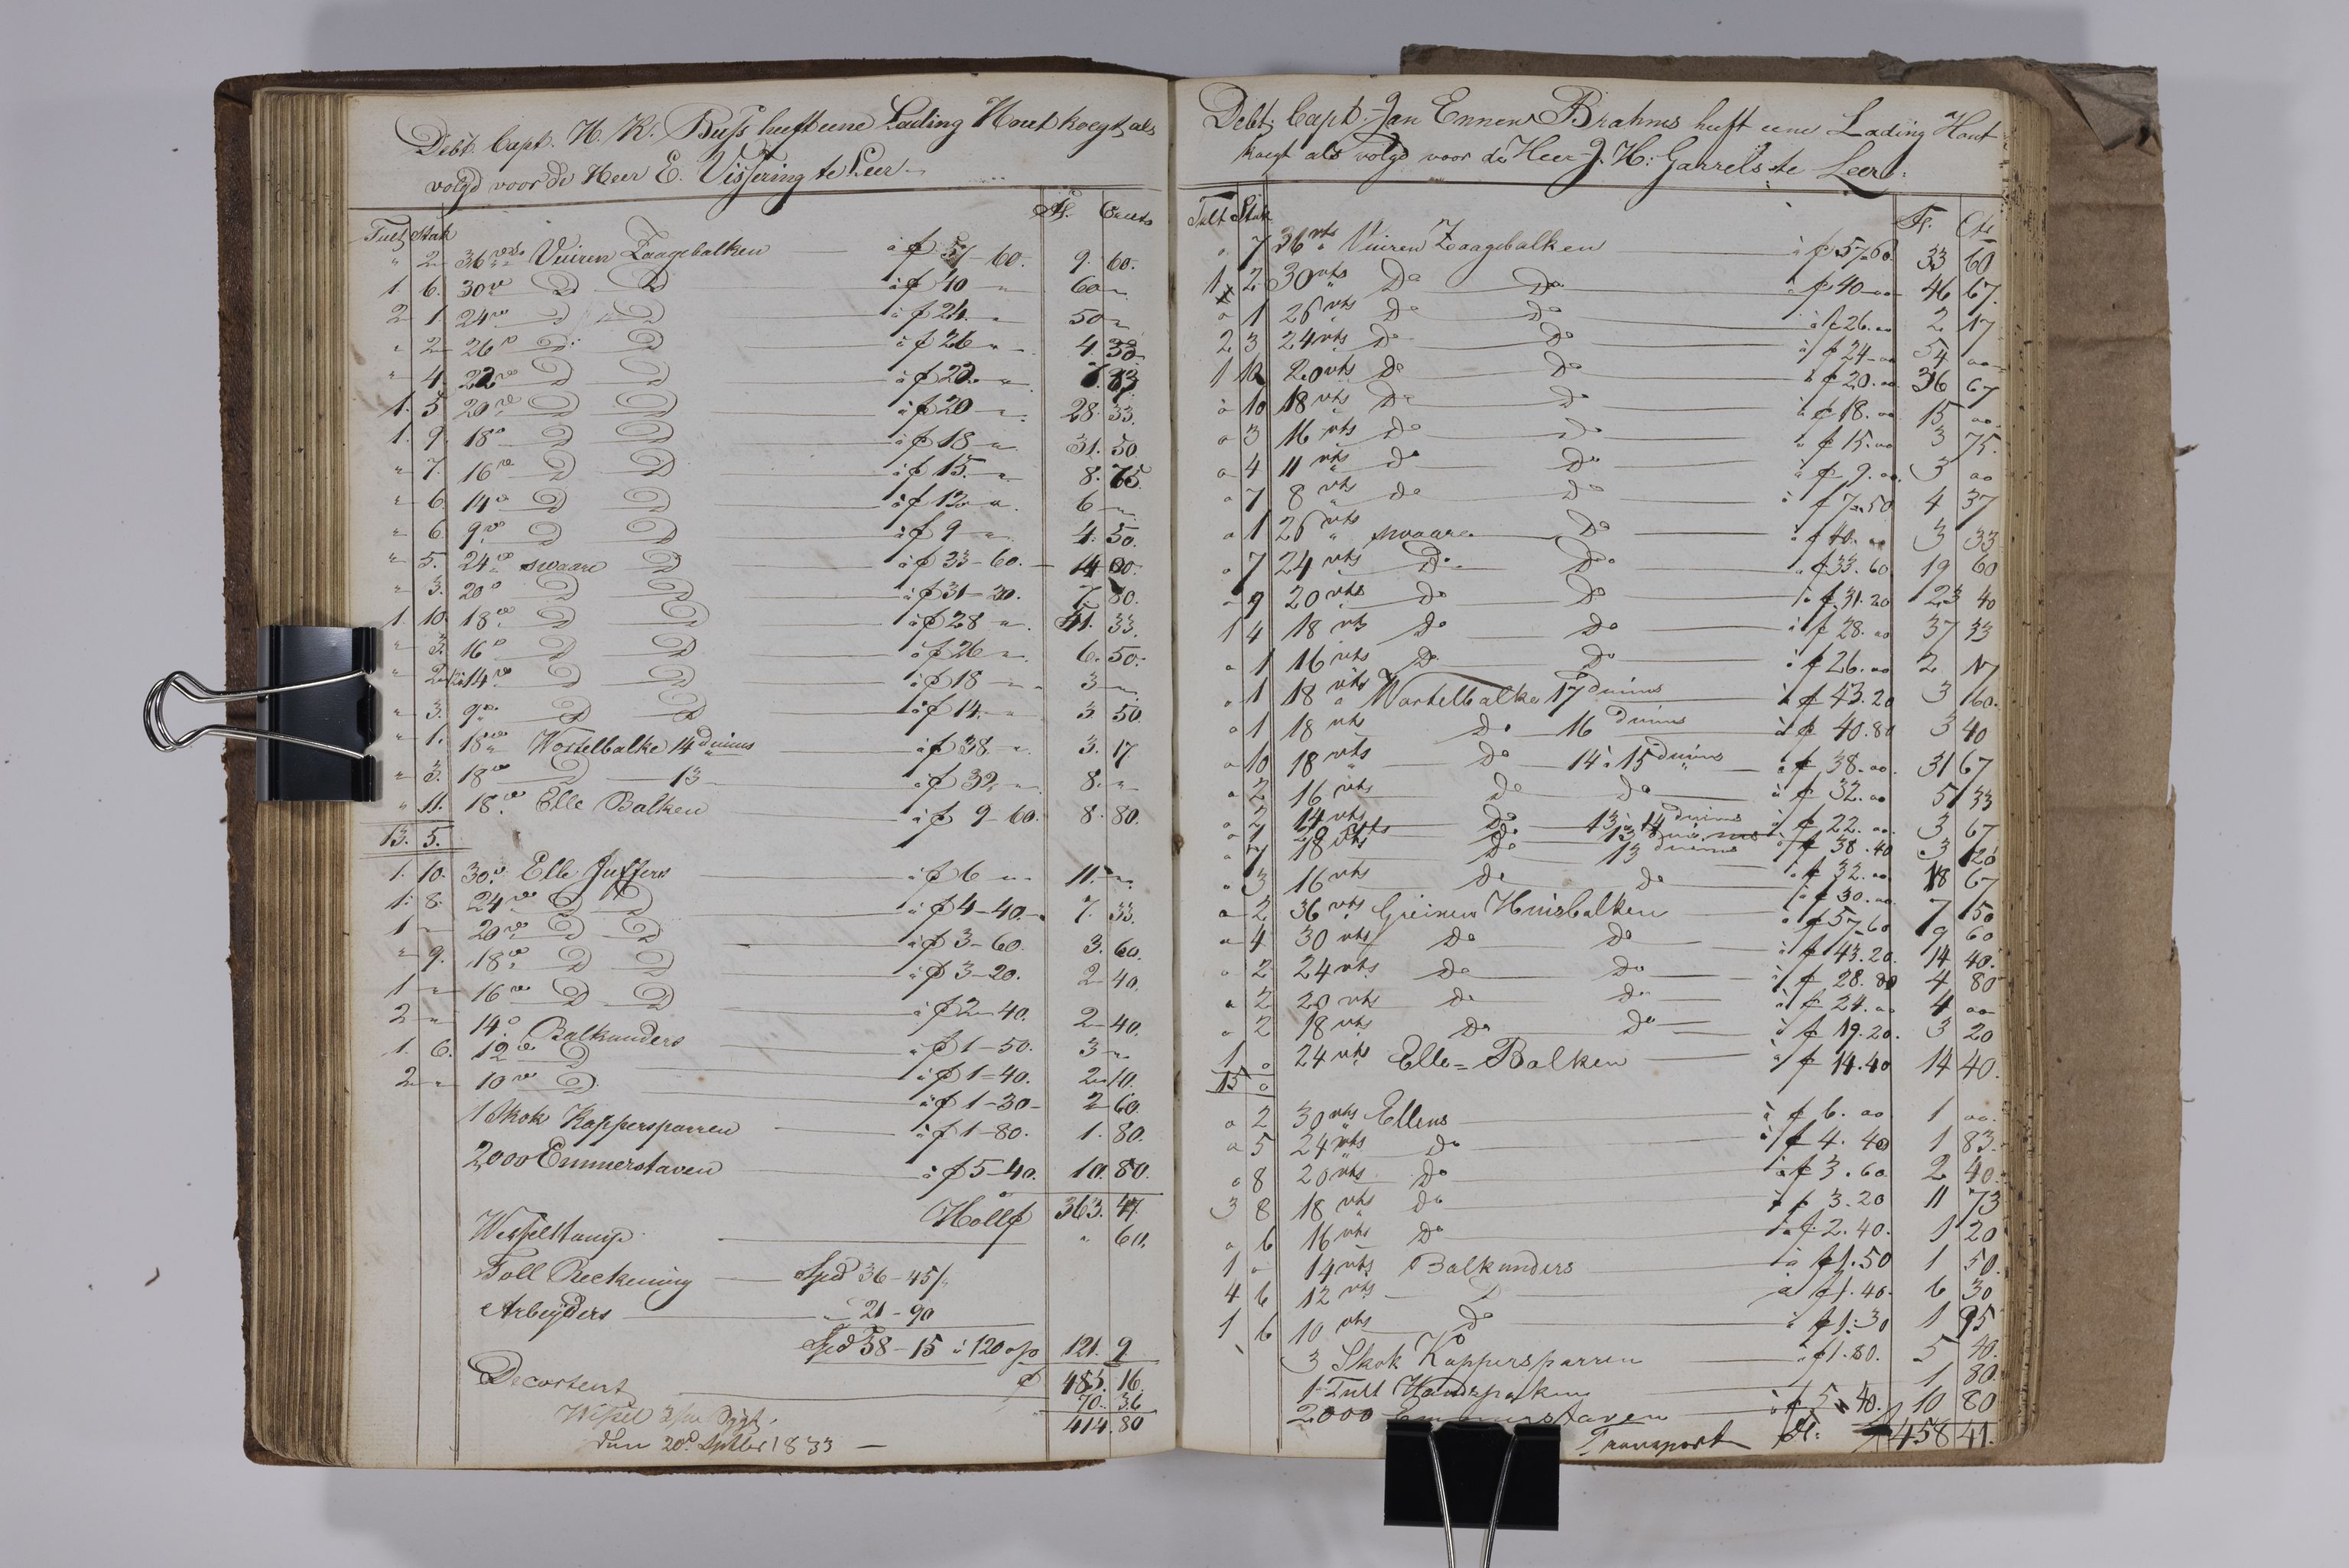 Debt. Capt. H. K. Buss heeft eene Lading Hout koegt als
volgd voor de Heer E. Vissering te Leer
Tult Stuk Fl. Cents
" 2 36 vts Vuiren Zaagebalken à f 57-60. 9. 60.
1 6. 30 v D D à f 40 " 60 "
2 1 24 v D D à f 24. " 50 "
" 2 26 v D D à f 26 " 4. 33
" 4. 22 v D D à f 22. " 7. 33
1. 5 20 v D D à f 20 " 28. 33.
1. 9. 18 v D D à f 18 " 31. 50
" 7. 16 v D D à f 15. " 8. 75.
" 6. 14 v D D à f 12 " 6 "
" 6. 9 v D D à f 9 " 4. 50.
" 5. 24 v swaare D à f 33-60. 14 00.
" 3. 20 v D D à f 31-20. 7. 80.
1. 10. 18 v D D à f 28 " 51. 33.
" 3. 16 v D D à f 26 " 6. 50.
" 2 14 v D D à f 18 " 3 "
" 3. 9 v D D à f 14. " 3 50.
" 1. 18 v Wortelbalke 14 duims à f 38. " 3. 17.
" 3. 18 v D 13 à f 32 " 8. "
" 11. 18 v Elle Balken à f 9-60. 8. 80.
13. 5.
1. 10. 30 v Elle Juffers à f 6 " 11. "
1. 8. 24 v D D à f 4-40. 7. 33.
1 " 20 v D D à f 3-60. 3. 60.
" 9. 18 v D D à f 3-20. 2 40.
1 " 16 v D D à f 2-40. 2 40.
2 " 14 v Balkunders à f 1-50. 3 "
1. 6. 12 v D à f 1-40. 2 10.
2 " 10 v D. à f 1-30 2 60.
1 Skok Kappersparren à f 1-80. 1. 80.
2000 Emmerstaven à f 5-40. 10. 80.
Holl f 363. 47.
Wesselstamp " 60.
Toll Reckening Spd 36-45/.
Arbeyders " 21-90
Spd 58-15 à 120 o/o 121. 9
f 485. 16
Decortent 70. 36
Wissel
414. 80
den 20 Septber 1833
Debt. Capt. Jan Ennen Brahms heeft eene Lading Hout
koegt als volgd voor de Heer J. H. Garrels te Leer.
Tult Stuk Fl. Cts
" 7 36 vts Vuiren Zaagebalken à f 57.60. 33 60
1 2 30 vts Do Do à f 40 " 46 67.
" 1 26 vts Do Do à f 26. " 2 17
2 3 24 vts Do Do à f 24 " 54 "
1 10 20 vts Do Do à f 20. " 36 67
" 10 18 vts Do Do à f 18. " 15 "
" 3 16 vts Do Do à f 15. " 3 75.
" 4 11 vts Do Do à f 9. " 3 "
" 7 8 vts Do Do à f 7.50 4 37
" 1 26 vts swaare Do à f 40. " 3 33
" 7 24 vts Do Do à f 33.60 19 60
" 9 20 vts Do Do à f 31.20 23 40
1 4 18 vts Do Do à f 28. " 37 33
" 1 16 vts Do Do à f 26. " 2 17
" 1 18 vts Wortelbalke 17 duims à f 43.20 3 60.
" 1 18 vts Do 16 duims à f 40.80 3 40
" 10 18 vts Do 14 à 15 duims à f 38. " 31 67
" 2 16 vts Do Do à f 32. " 5 33
" 2 14 vts Do 13 à 14 duims à f 22. " 3 67
" 1 Do à f 38.40 3 20
" 7 18 vts Do 13 duims à f 32. " 18 67
" 3 16 vts Do Do à f 30. " 7 50
" 2 36 vts Greinen Huisbalken à f 57.60 9 60
" 4 30 vts Do Do à f 43.20. 14 40.
" 2 24 vts Do Do à f 28.80 4 80
" 2 20 vts Do Do à f 24. " 4 "
" 2 18 vts Do Do à f 19.20. 3 20
1 " 24 vts Elle-Balken à f 14.40 14 40.
15 "
" 2 30 vts Ellens à f 6. " 1 "
" 5 24 vts Do à f 4.40 1 83.
" 8 20 vts Do à f 3.60 2 40.
3 8 18 vts Do à f 3.20 11 73
" 6 16 vts Do à f 2.40. 1 20
1 " 14 vts Balkunders à f 1.50 1 50.
4 6 12 vts D à f 1.40. 6 30
1 6 10 vts Do à f 1.30 1 95
3 Skok Kappersparren à f 1.80. 5 40.
1 Tult Handspaken 1 80.
2000 Emmerstaven à f 5.40. 10 80
Transport Fl. 458 41.